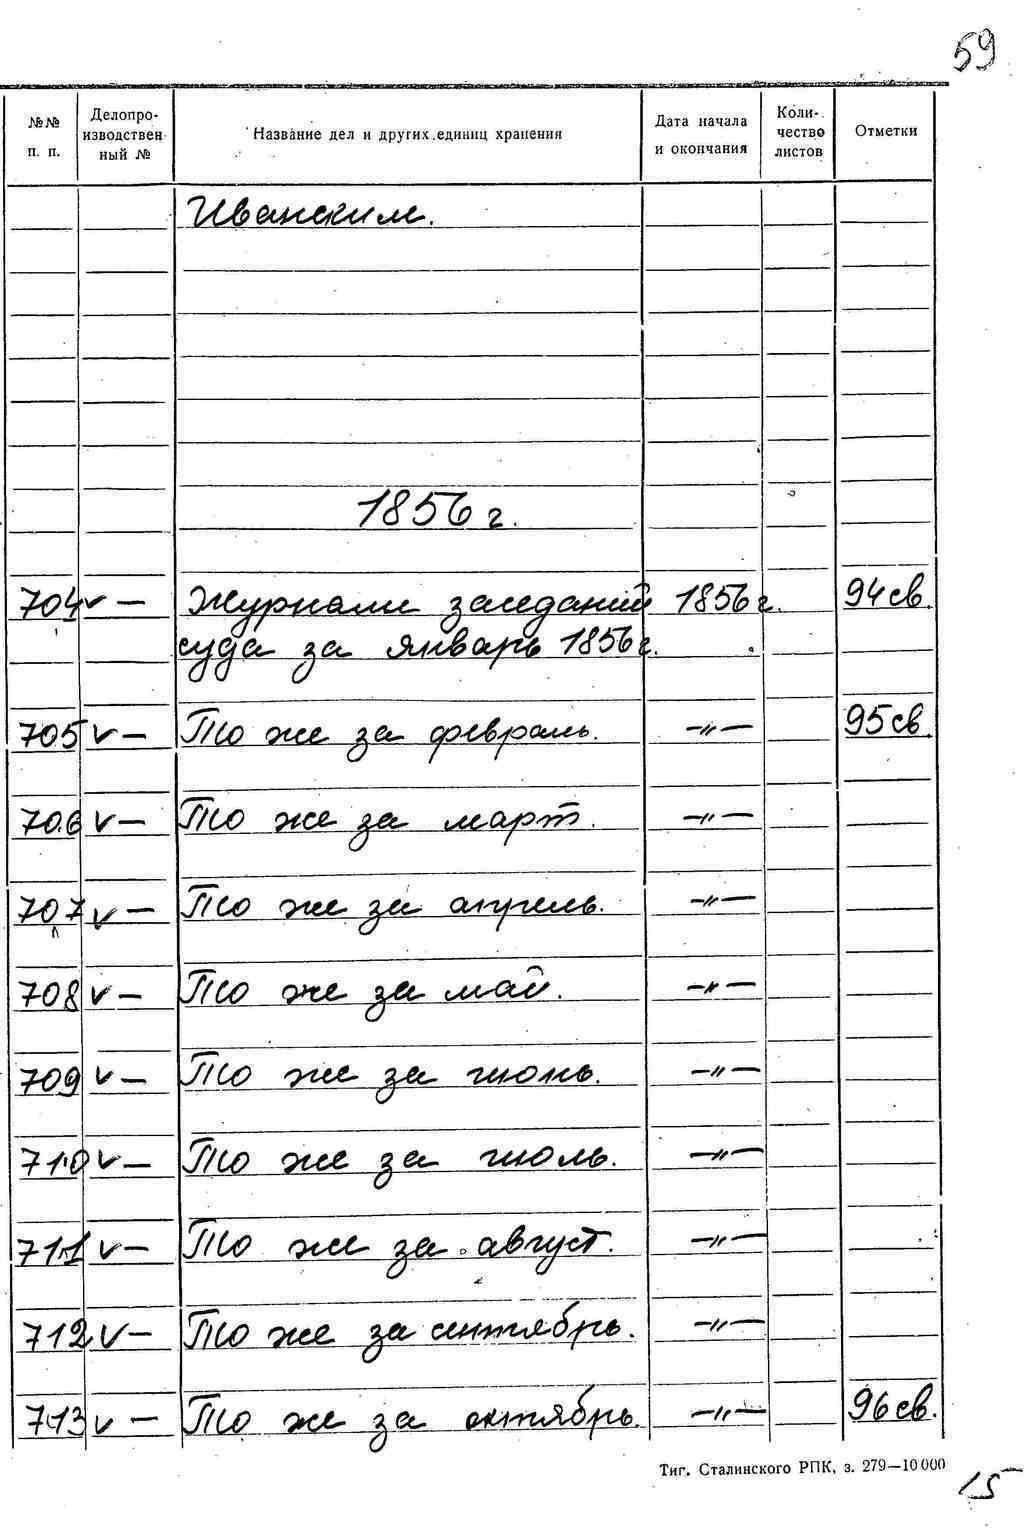 59
№№ п. п. Делопроизводственный № Название дел и других единиц хранения Дата начала и окончания Количество листов Отметки
Иванским.
1856 г.
704 v — Журналы заседаний 1856 г. 94 св.
суда за январь 1856 г.
705 v — То же за февраль. —"— 95 св.
706 v — То же за март. —"—
707 v — То же за апрель. —"—
708 v — То же за май. —"—
709 v — То же за июнь. —"—
710 v — То же за июль. —"—
711 v — То же за август. —"—
712 v — То же за сентябрь. —"—
713 v — То же за октябрь. —"— 96 св.
Тиг. Сталинского РПК, з. 279—10 000
15